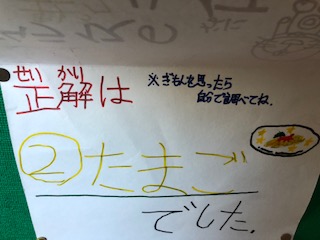 せい かい
正解は
※ぎもんを思ったら
自分で調べてね.
②たまご
でした.